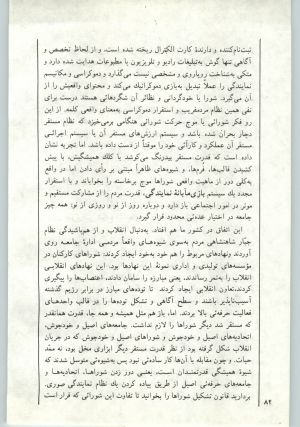 ثبت‌نام‌کننده و دارندهٔ کارت الکترال ریخته شده است. و از لحاظ تخصص و
آگاهی تنها گوش به‌تبلیغات رادیو و تلریزیون یا مطبوعات هدایت شده دارد و
متکی به‌شناخت رویاروی و مشخصی نیست می‌گذارد و دموکراسی و مکانیسم
نمایندگی را عملا تبدیل به‌بازی دموکراتیک می‌کند و محتوای واقعیش را از
آن می‌گیرد. شورا یا خودگردانی و نظائر آن شگردهائی هستند درست برای
نفی همین نظام مرده‌فریب و استقرار دموکراسی به‌معنای واقعی کلمه. از این
رو فکر شورائی با موج حرکت شورائی هنگامی برمی‌خیزد که نظام مستقر
دچار بحران شده باشد و سیستم ارزش‌های مستقر آن یا سیستم اجرائی
مستقر آن عملکرد و کارآئی خود را موقتاً از دست داده باشد. اما تجربه نشان
داده است که قدرت مستقر بیدرنگ می‌کوشد با کلک همیشگیش، با پیش
کشیدن قالب‌ها، فُرم‌ها، و شیوه‌های ظاهراً مبتنی بر رأی دادن اما در واقع
به‌کلی دور از ماهیت واقعی شوراها موج برخاسته را بخواباند و با استقرار
مجدد یك سیستم بازی‌مآبانهٔ نمایندگی، قدرت مردم را از مشارکت مستقیم و
موثر در امور اجتماعی باز دارد و دوباره روز از نو و روزی از نو: همه چیز
جامعه در اختیار عده‌ئی محدود قرار گیرد.
این اتفاق در کشور ما هم افتاد. به‌دنبال انقلاب و از هم‌پاشیدگی نظام
جبّار شاهنشاهی مردم به‌سوی شیوه‌های واقعاً مردمی ادارهٔ جامعه روی
آوردند ونهادهای مربوط را هم خود به‌خود ایجاد کردند: شوراهای کارکنان در
مؤسسه‌های تولیدی و اداری نمونهٔ این نهادها بود. این نهادهای انقلابی
انقلاب را به‌ثمر رساندند. یعنی مبارزه را سامان دادند، اعتصاب‌ها را پیگیری
کردند،تعاون انقلابی ایجاد کردند تا توده‌های مبارز در برابر رژیم گذشته
آسیب‌ناپذیر باشند و سطح آگاهی و تشکل توده‌ها را در قالب واحدهای
فعالیت حرفه‌ئی بالا بردند. اما، باز هم مثل همیشه و همه جا، قدرت همانقدر
که مستقر شد دیگر شوراها را لازم نداشت. جامعه‌های اصیل و خودجوش،
اتحادیه‌های اصیل و خودجوش و شوراهای اصیل و خودجوش که در جریان
انقلاب شکل گرفته بود از نظر قدرت مستقر دیگر ابزاری مخل بود، نه ممّد
حیات. و چون مقابله با آن‌ها کار ساده‌ئی نبود پس به‌شیوه‌ئی متوسل شدند که
شیوهٔ همیشگی قدرتمندان است، یعنی دور زدن شوراها، اتحادیه‌ها و
جامعه‌های حرفه‌ئی اصیل از طریق پیاده کردن یك نظام نمایندگی صوری.
بردارید قانون تشکیل شوراها را بخوانید تا تفاوت این شورائی که قرار است
۸۲